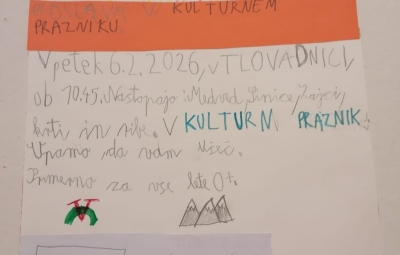 V KULTURNEM
PRAZNIKU.
V petek 6.2.2026, v TLOVADNICI,
ob 10.45. Nastopajo: Medved, Sinice, Zajci,
krti in ribe. V KULTURN PRAZNIK.
Upamo da vam všeč.
Primerno za vse lete 0+.